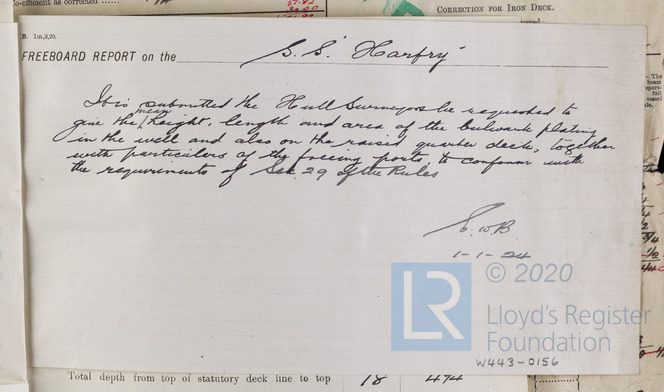 Co-efficient as corrected
CORRECTION FOR IRON DECK.
B. 1m,9,20.
FREEBOARD REPORT on the S.S. "Harfry"
It is submitted the Hull Surveyors be requested to
give the mean height, length and area of the bulwark plating
in the well and also on the raised quarter deck, together
with particulars of the freeing ports, to conform with
the requirements of Sec. 29 of the Rules
1-1-24
LR
© 2020
Lloyd's Register
Foundation
W443-0156
Total depth from top of statutory deck line to top 18 474